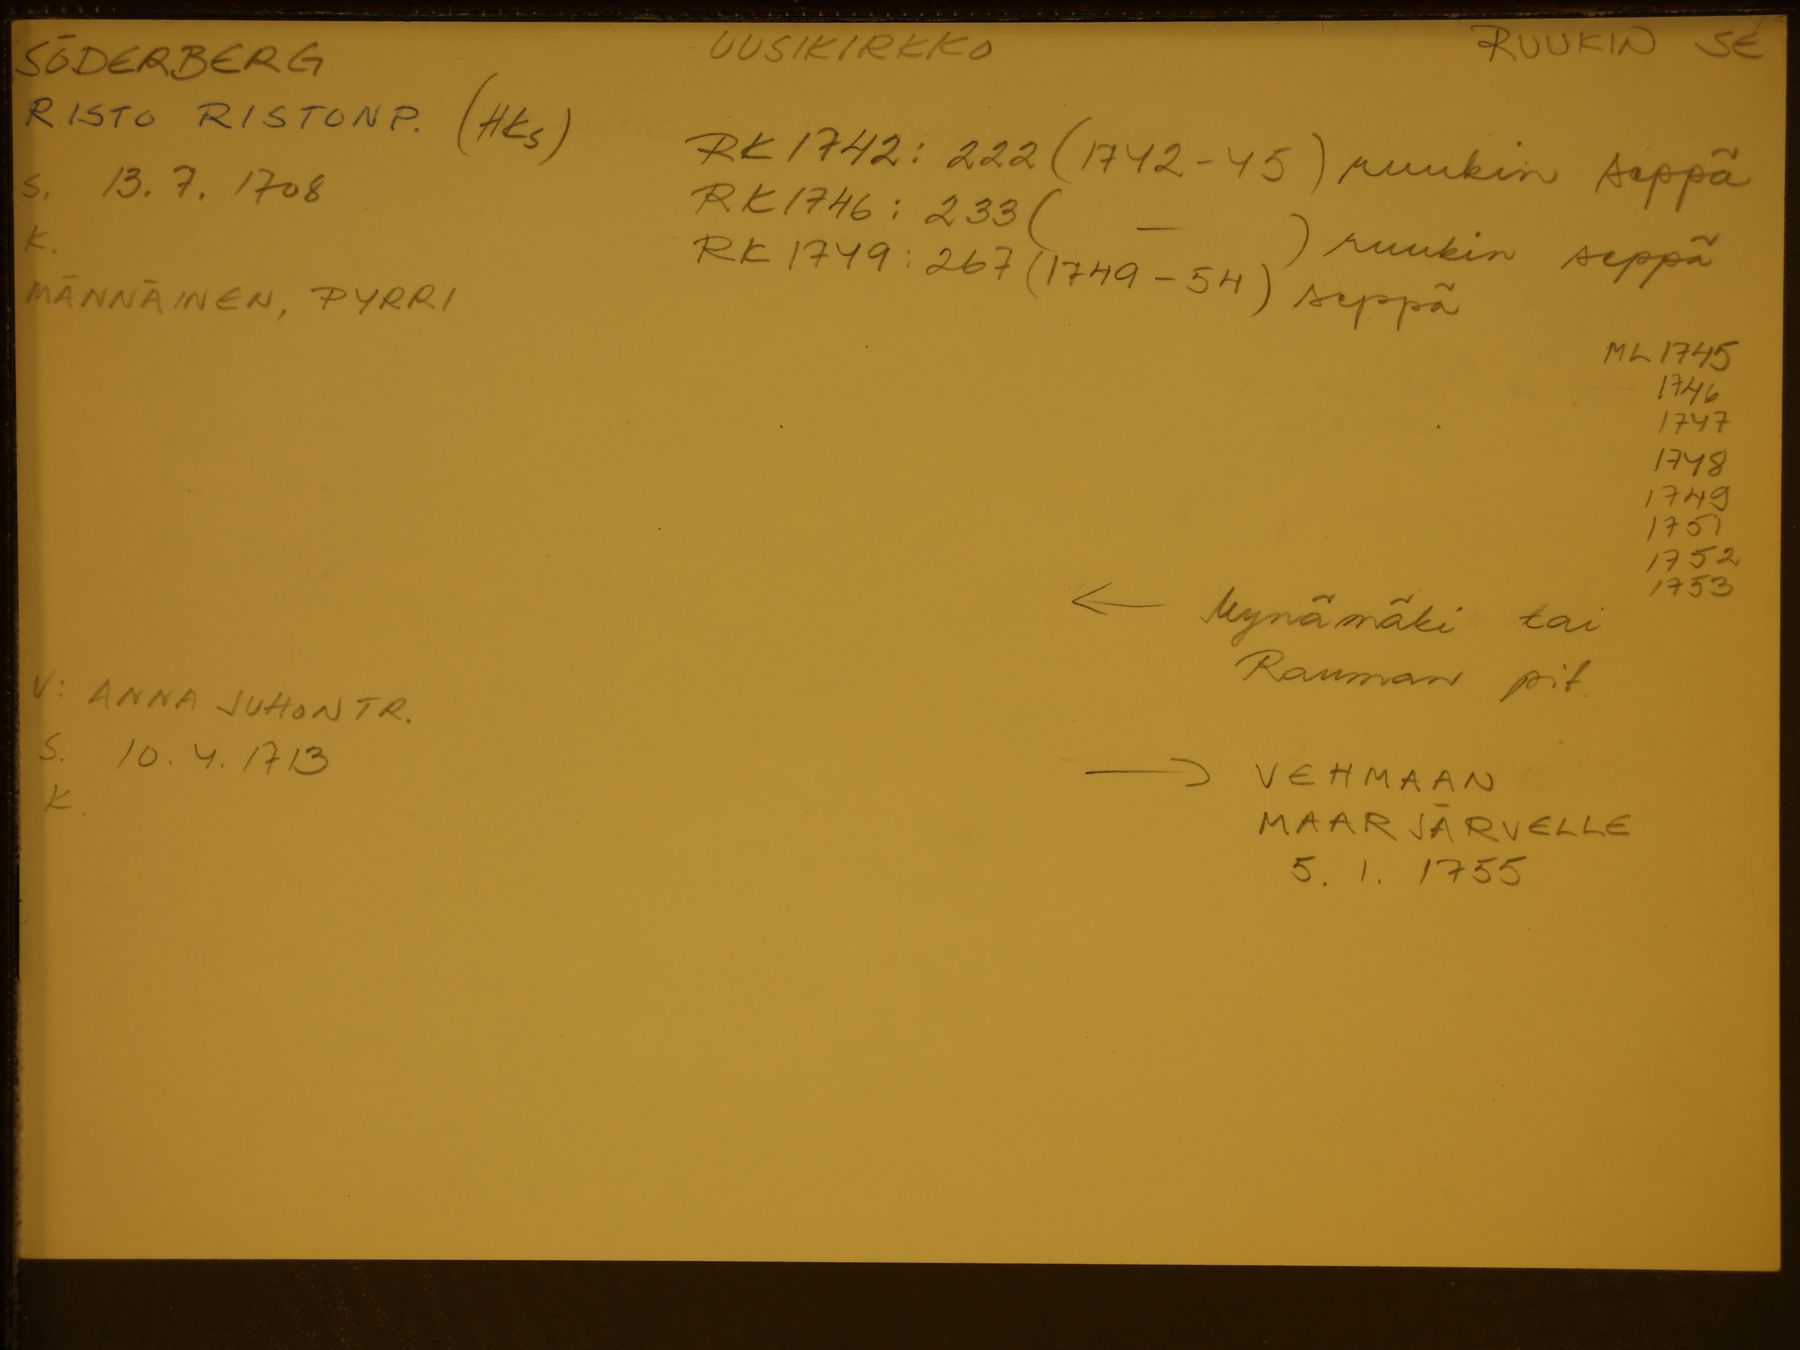 SÖDERBERG
RISTO RISTONP. (HKS)
S. 13. 7. 1708
K.
MÄNNÄINEN, PYRRI
V: ANNA JUHONTR.
S. 10. 4. 1713
K.
UUSIKIRKKO
RUUKIN SE
RK 1742: 222 (1742-45) ruukin seppä
RK 1746: 233 ( — ) ruukin seppä
RK 1749: 267 (1749-54) seppä
ML 1745
1746
1747
1748
1749
1751
1752
1753
← Mynämäki tai
Rauman pit.
→ VEHMAAN
MAARJÄRVELLE
5. 1. 1755